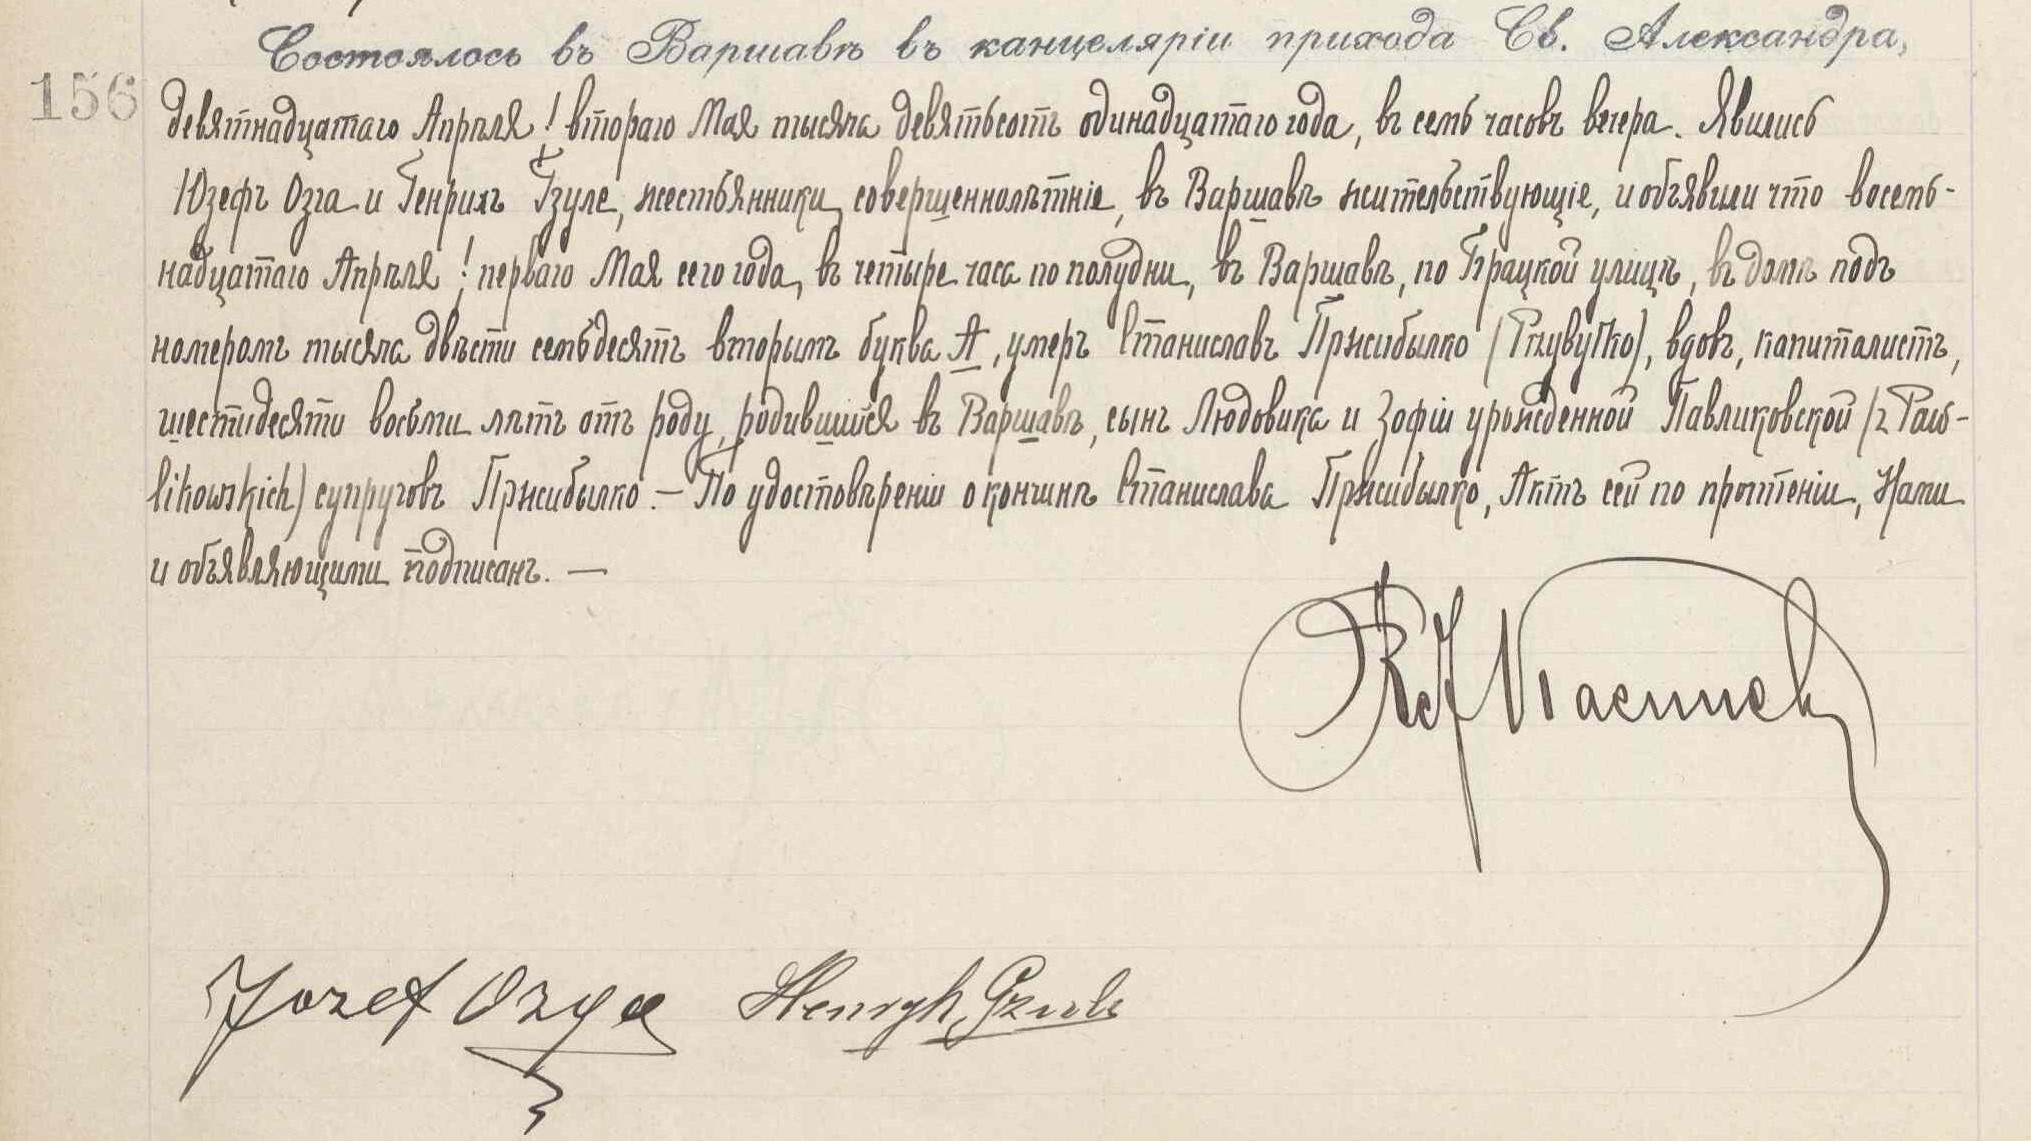 Состоялось въ Варшавѣ въ канцеляріи прихода Св. Александра,
156
девятнадцатаго Апрѣля / втораго Мая тысяча девятьсотъ одинадцатаго года, въ семь часовъ вечера. Явились
Юзефъ Озга и Генрихъ Гзуле, жестьянники, совершеннолѣтніе, въ Варшавѣ жительствующіе, и объявили что восем-
надцатаго Апрѣля / перваго Мая сего года, въ четыре часа по полудни, въ Варшавѣ, по Брацкой улицѣ, въ домѣ подъ
номеромъ тысяча двѣсти семьдесятъ вторымъ буква А, умеръ Станиславъ Пржибылко (Przybyłko), вдовъ, капиталистъ,
шестидесяти восьми лѣтъ отъ роду, родившійся въ Варшавѣ, сынъ Людовика и Зофіи урожденной Павликовской (z Paw-
likowskich) супруговъ Пржибылко. — По удостовѣреніи о кончинѣ Станислава Пржибылко, Актъ сей по прочтеніи, Нами
и объявляющими подписанъ. —
Jozef Ozga Henryh Gzule